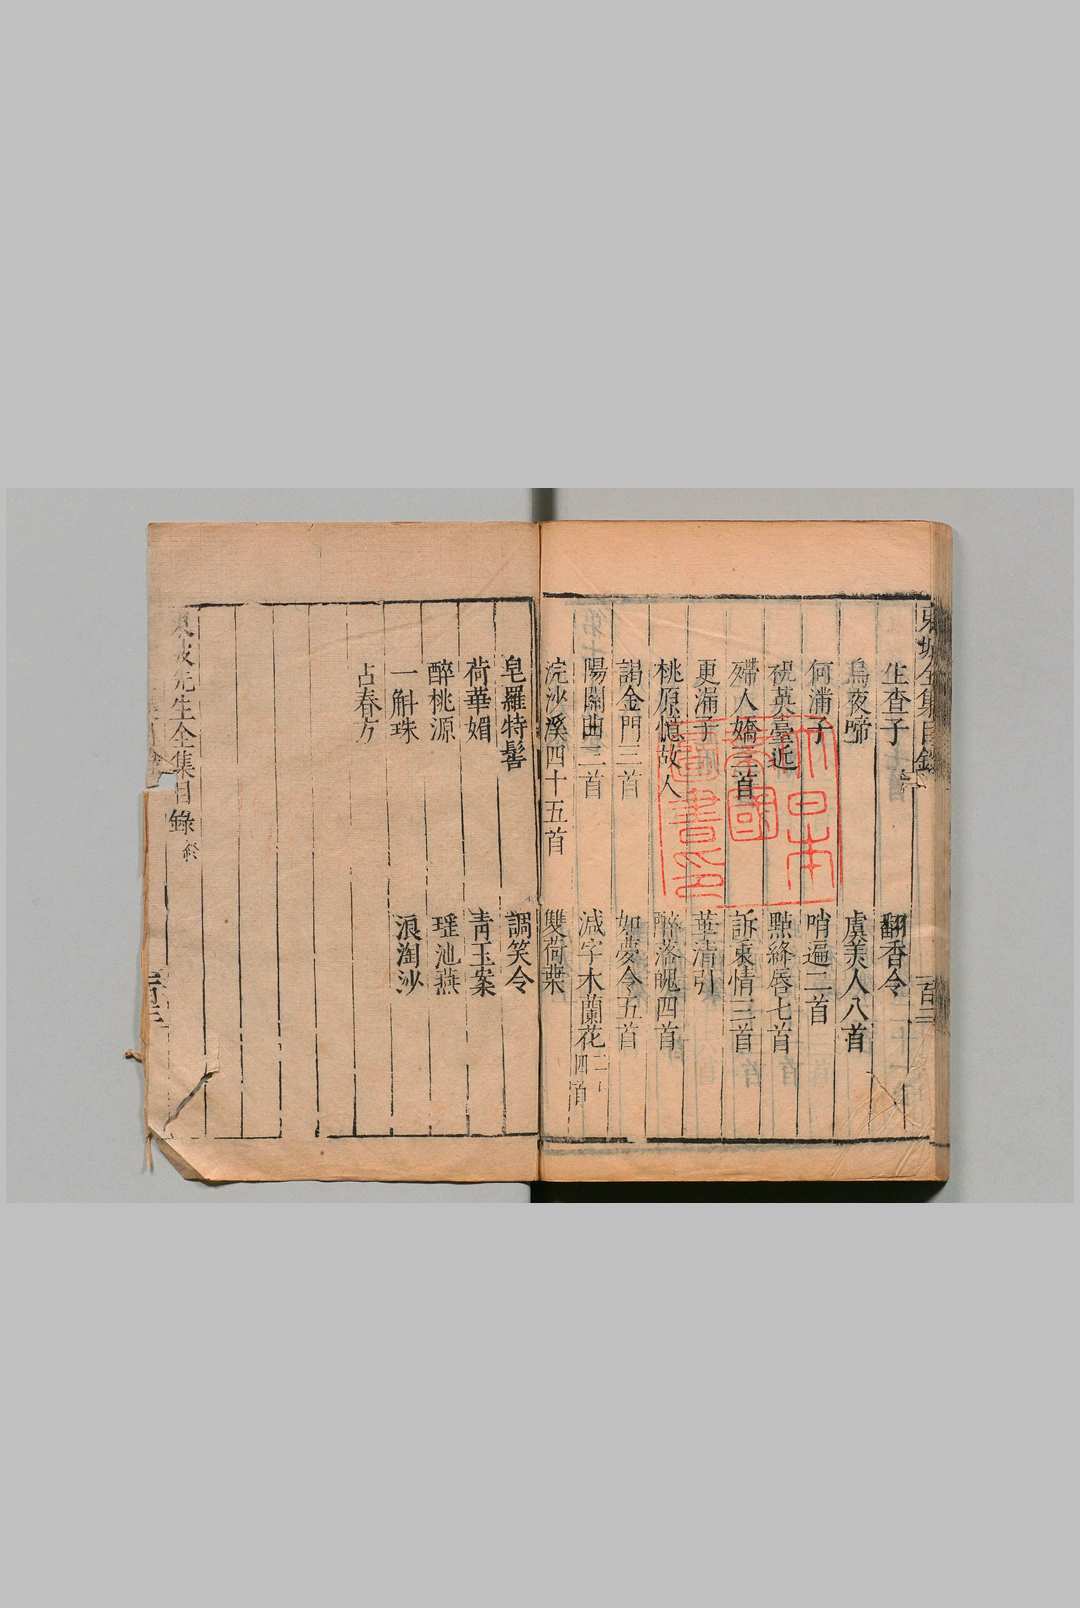 東坡全集目錄
生查子
翻香令
烏夜啼
虞美人八首
何滿子
哨遍二首
祝英臺近
點絳唇七首
殢人嬌三首
訴衷情三首
更漏子
華清引
桃源憶故人
醉落魄四首
謁金門三首
如夢令五首
陽關曲三首
減字木蘭花二十四首
浣沙溪四十五首
雙荷葉
皂羅特髻
調笑令
荷華媚
青玉案
醉桃源
瑤池燕
一斛珠
浪淘沙
占春方
東坡先生全集目錄終
大日本
帝國
圖書印